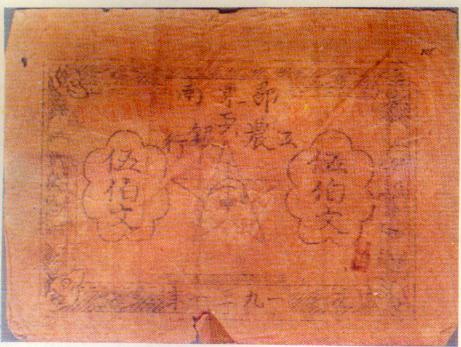 鄂東南
工農銀行
伍伯文
伍伯文
一九